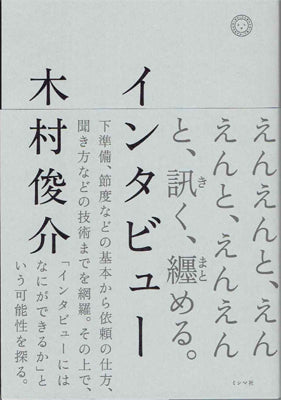 えんえんと、えん
えんと、えんえん
と、訊く、纏める。
き
まと
インタビュー
木村俊介
下準備、節度などの基本から依頼の仕方、
聞き方などの技術までを網羅。その上で、
「インタビューには
なにができるか」と
いう可能性を探る。
ミシマ社